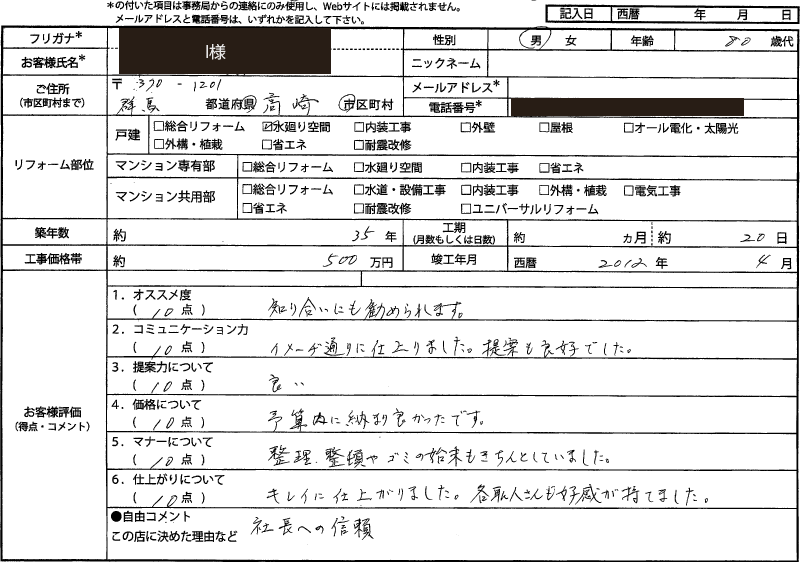 *の付いた項目は事務局からの連絡にのみ使用し、Webサイトには掲載されません。
メールアドレスと電話番号は、いずれかを記入して下さい。
記入日 西暦 年 月 日
フリガナ* I様 性別 男 女 年齢 80 歳代
お客様氏名* ニックネーム
ご住所 〒370-1201 メールアドレス*
(市区町村まで) 群馬 都道府県 高崎 市区町村 電話番号*
リフォーム部位
戸建 □総合リフォーム ☑水廻り空間 □内装工事 □外壁 □屋根 □オール電化・太陽光
□外構・植栽 □省エネ □耐震改修
マンション専有部 □総合リフォーム □水廻り空間 □内装工事 □省エネ
マンション共用部 □総合リフォーム □水道・設備工事 □内装工事 □外構・植栽 □電気工事
□省エネ □耐震改修 □ユニバーサルリフォーム
築年数 約 35 年 工期 (月数もしくは日数) 約 ヵ月 約 20 日
工事価格帯 約 500 万円 竣工年月 西暦 2012 年 4 月
お客様評価
(得点・コメント)
1. オススメ度
( 10 点 ) 知り合いにも勧められます。
2. コミュニケーション力
( 10 点 ) イメージ通りに仕上りました。提案も良好でした。
3. 提案力について
( 10 点 ) 良い
4. 価格について
( 10 点 ) 予算内に納まり良かったです。
5. マナーについて
( 10 点 ) 整理、整頓やゴミの始末もきちんとしていました。
6. 仕上がりについて
( 10 点 ) キレイに仕上がりました。各職人さんも好感が持てました。
●自由コメント
この店に決めた理由など 社長への信頼